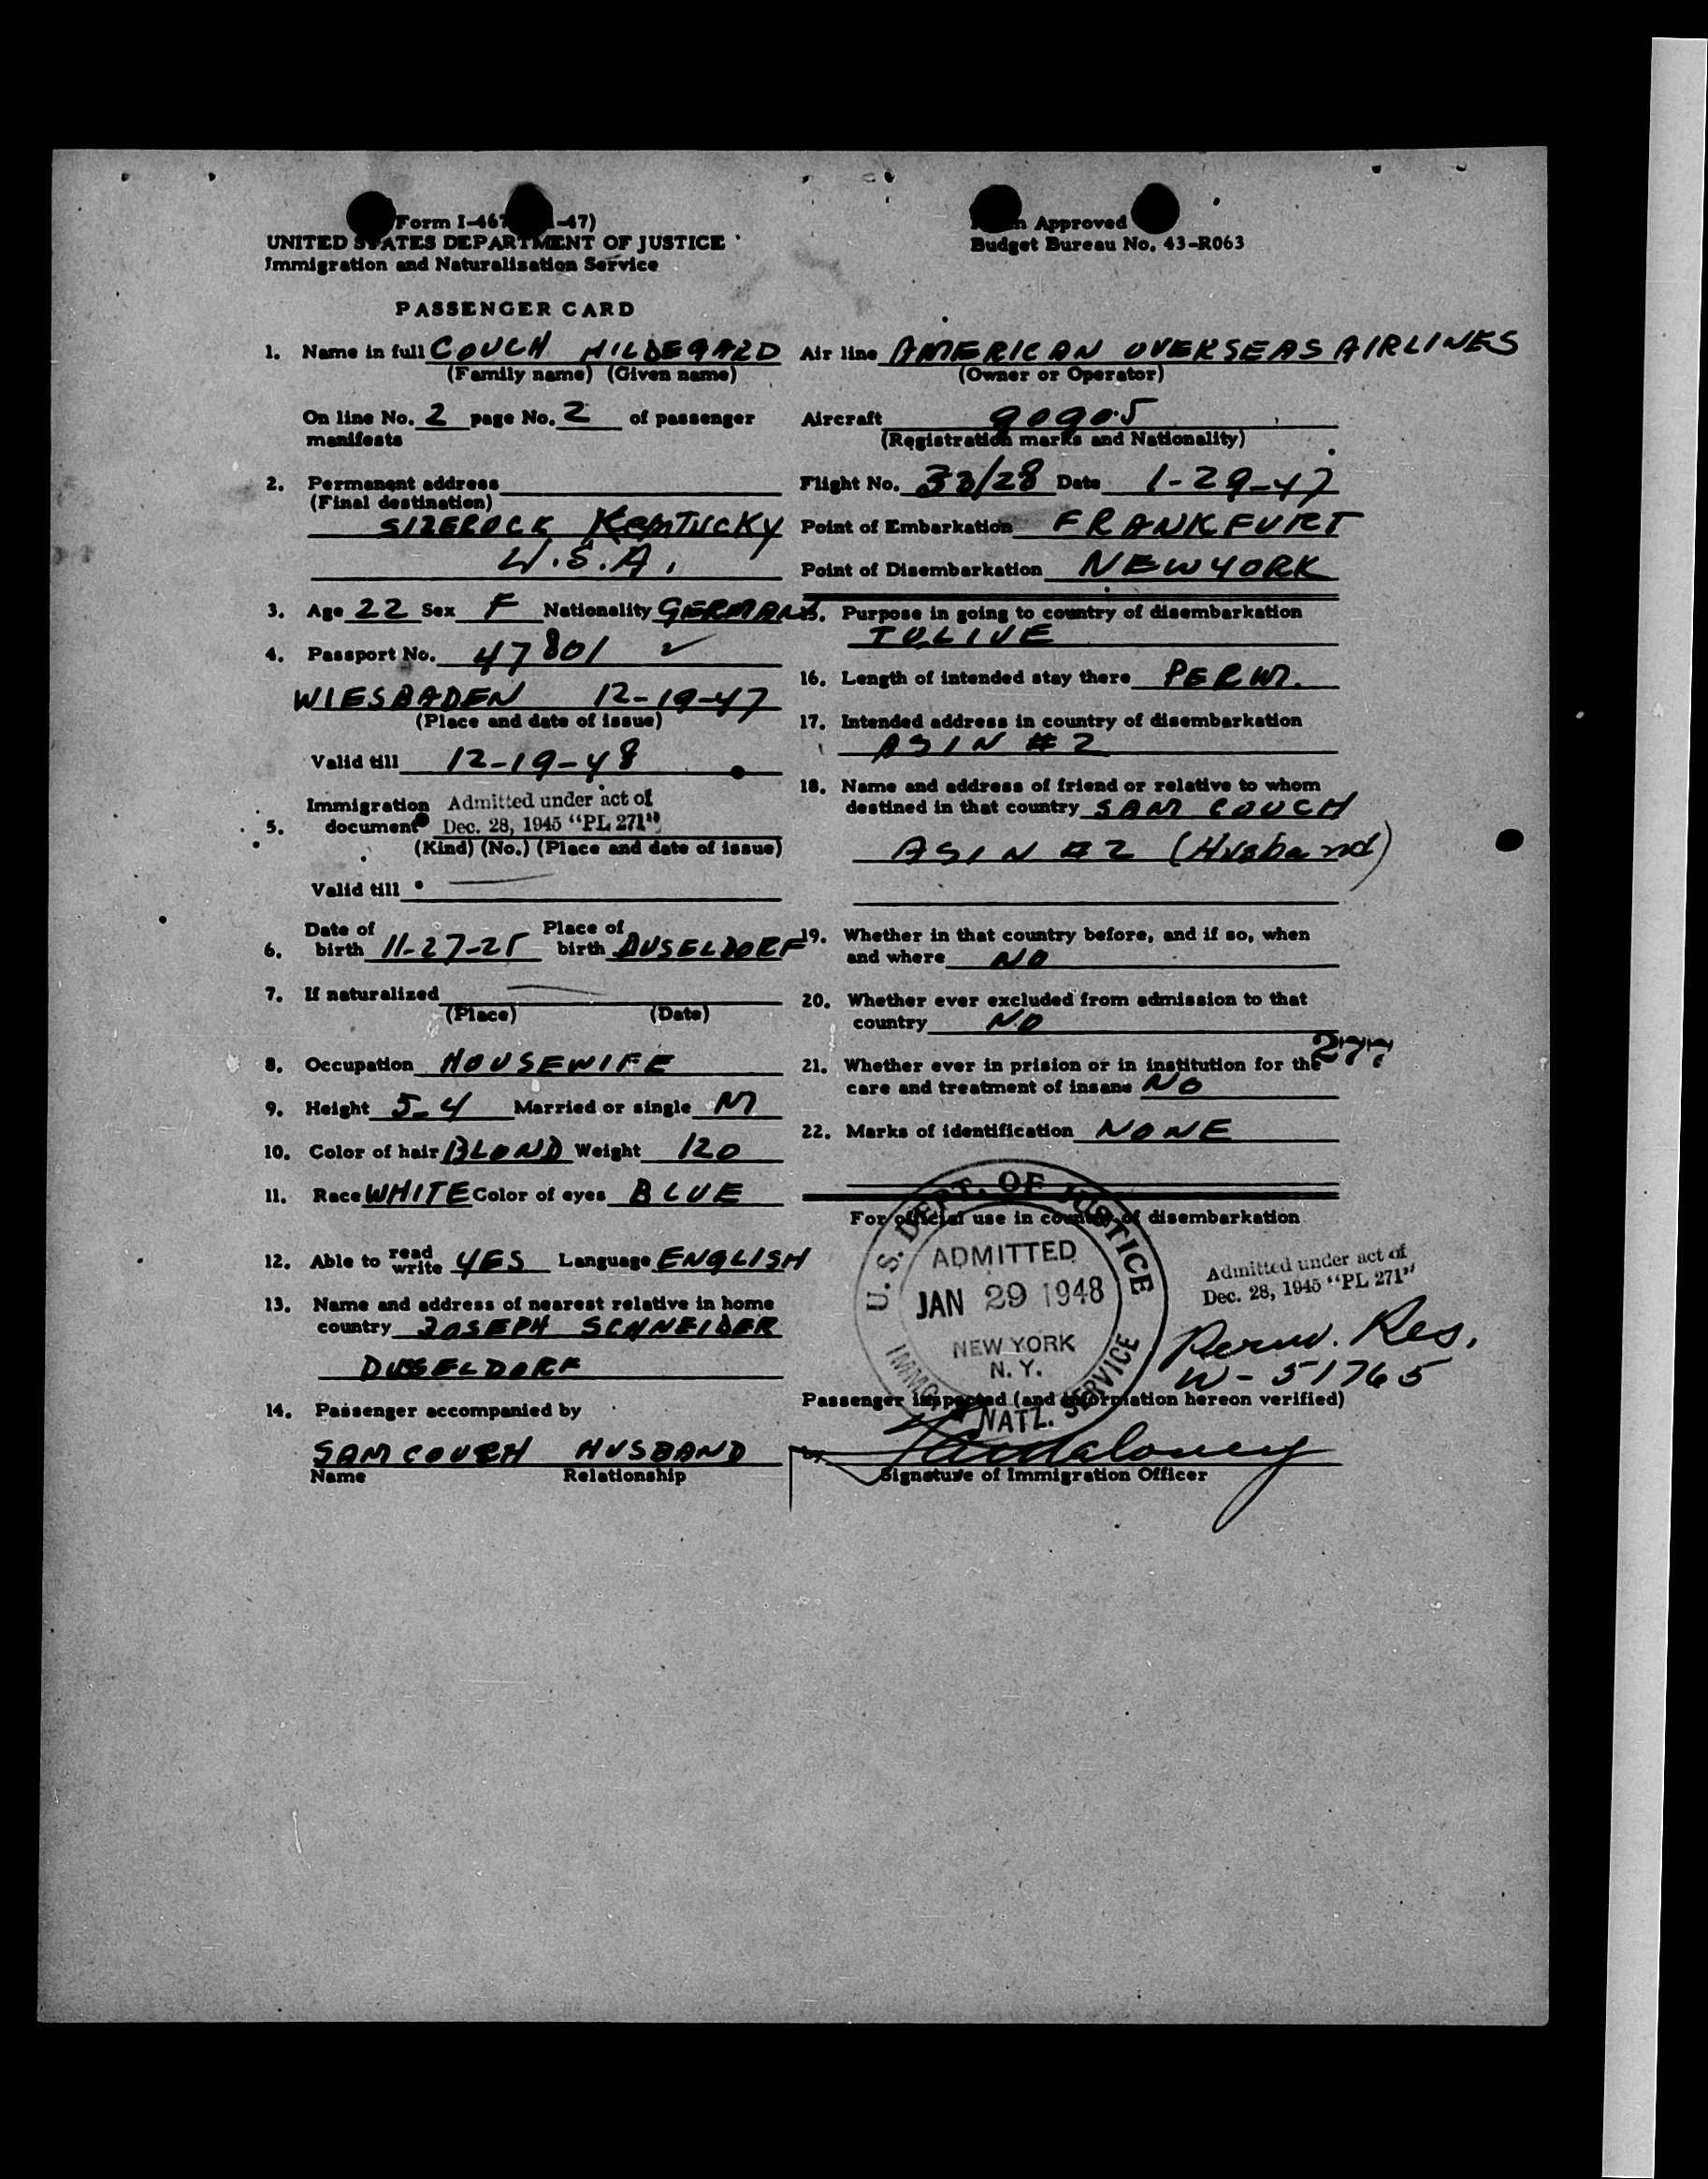 Form I-467 -47)
UNITED STATES DEPARTMENT OF JUSTICE
Immigration and Naturalization Service
Approved
Budget Bureau No. 43-R063
PASSENGER CARD
1. Name in full COUCH HILDEGARD
(Family name) (Given name)
On line No. 2 page No. 2 of passenger
manifests
2. Permanent address
(Final destination)
SIZEROCK KENTUCKY
U.S.A.
3. Age 22 Sex F Nationality GERMANY
4. Passport No. 47801 ✓
WIESBADEN 12-19-47
(Place and date of issue)
Valid till 12-19-48
5. Immigration document Admitted under act of
Dec. 28, 1945 "PL 271"
(Kind) (No.) (Place and date of issue)
Valid till
6. Date of birth 11-27-25 Place of birth DUSELDORF
7. If naturalized
(Place) (Date)
8. Occupation HOUSEWIFE
9. Height 5-4 Married or single M
10. Color of hair BLOND Weight 120
11. Race WHITE Color of eyes BLUE
12. Able to read write YES Language ENGLISH
13. Name and address of nearest relative in home
country JOSEPH SCHNEIDER
DUSSELDORF
14. Passenger accompanied by
SAM COUCH HUSBAND
Name Relationship
Air line AMERICAN OVERSEAS AIRLINES
(Owner or Operator)
Aircraft 90905
(Registration marks and Nationality)
Flight No. 33/28 Date 1-29-47
Point of Embarkation FRANKFURT
Point of Disembarkation NEW YORK
15. Purpose in going to country of disembarkation
TO LIVE
16. Length of intended stay there PERM.
17. Intended address in country of disembarkation
AS IN #2
18. Name and address of friend or relative to whom
destined in that country SAM COUCH
AS IN #2 (Husband)
19. Whether in that country before, and if so, when
and where NO
20. Whether ever excluded from admission to that
country NO
277
21. Whether ever in prision or in institution for the
care and treatment of insane NO
22. Marks of identification NONE
For official use in country of disembarkation
U.S. DEPT. OF JUSTICE
ADMITTED
JAN 29 1948
NEW YORK
N.Y.
NATZ. SERVICE
Admitted under act of
Dec. 28, 1945 "PL 271"
Perm. Res.
W-51765
Passenger inspected (and information hereon verified)
by
Signature of Immigration Officer